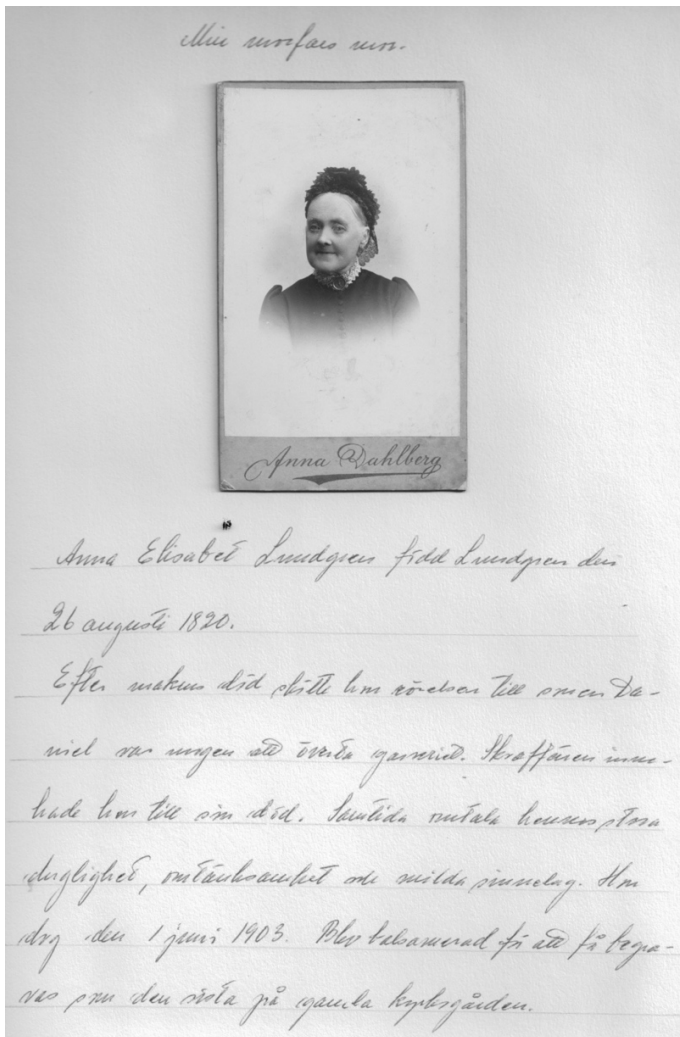 Min morfars mor.
Anna Dahlberg
Anna Elisabet Lundgren född Lundgren den
26 augusti 1820.
Efter makens död skötte hon rörelsen till sonen Da-
niel var mogen att överta garveriet. Skoaffären inne-
hade hon till sin död. Samtida omtala hennes stora
duglighet, omtänksamhet och milda sinnelag. Hon
dog den 1 juni 1903. Blev balsamerad för att få begra-
vas som den sista på gamla kyrkogården.